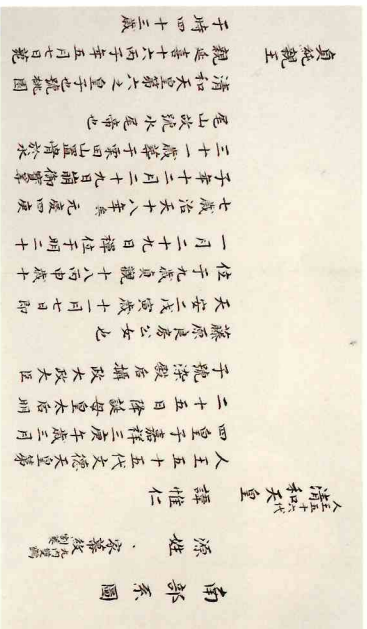 南部系圖
源姓・家幕紋 丸内雙鶴 割菱
人王五十六代
清和天皇 諱惟仁
人王五十五代文德天皇第
四皇子嘉祥三庚午歳三月
二十五日降誕母皇太后明
子號染殿后攝政大政大臣
藤原良房公女也
天安二戊寅歳十一月七日即
位于九歳貞觀十八丙申歳十
一月二十九日禪位于明二十
七歳治天十八年矣 元慶四庚
子年十二月二十九日崩御寶
三十一歳葬于粟田山置骨於水
尾山故號水尾帝也
貞純親王
清和天皇第六之皇子也號桃園
親延喜十六丙子年五月七日薨
于時四十三歳